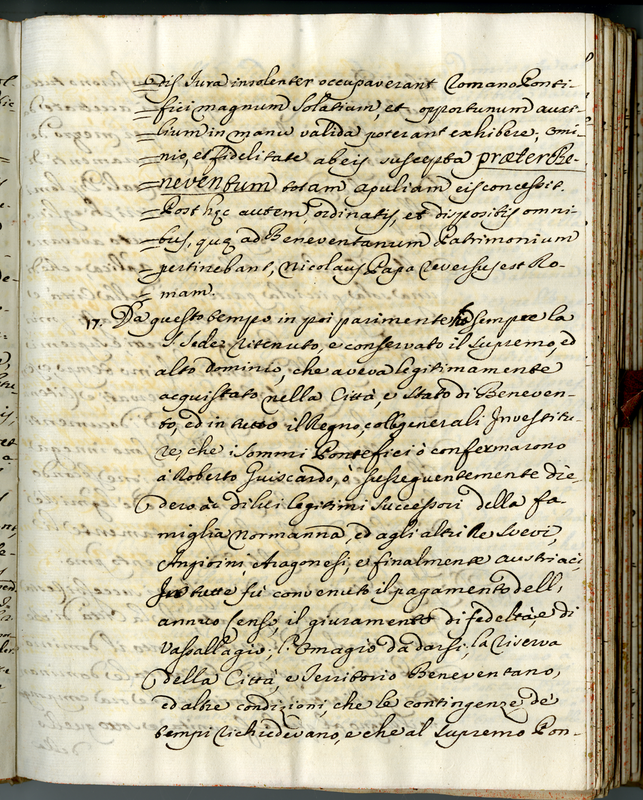 = tis Jura insolenter occupaverant Romano Ponti-
= fici magnum solatium, et opportunum auxi-
= lium in manu valida poterant exhibere; omi-
= nio, et fidelitate ab eis suscepta præter Be-
= neventum totam Apuliam eis concessit.
= Post hęc autem, ordinatis, et dispositis omni-
= bus, quę ad Beneventanum Patrimonium
= pertinebant, Nicolaus Papa reversus est Ro-
= mam.
17. Da questo tempo in poi parimente hà sempre la
S. Sede ritenuto, e conservato il supremo, ed
alto Dominio, che aveva legitimamente
acquistato nella Città, e Stato di Beneven-
to, ed in tutto il Regno, colle generali Investitu-
re, che i Sommi Pontefici ò confermarono
à Roberto Guiscardo, ò susseguentemente die-
dero à di lui legitimi successori della fa-
miglia Normanna, ed agli altri Re Svevi,
Angioini, Aragonesi, e finalmente Austriaci.
In tutte fù convenuto il pagamento dell'
annuo Censo, il giuramento di fedeltà e di
Vassallagio. l'Omagio da darsi, la riserva
della Città, e Territorio Beneventano,
ed altre condizioni, che le contingenze de'
tempi richiedevano, e che al supremo Pon-